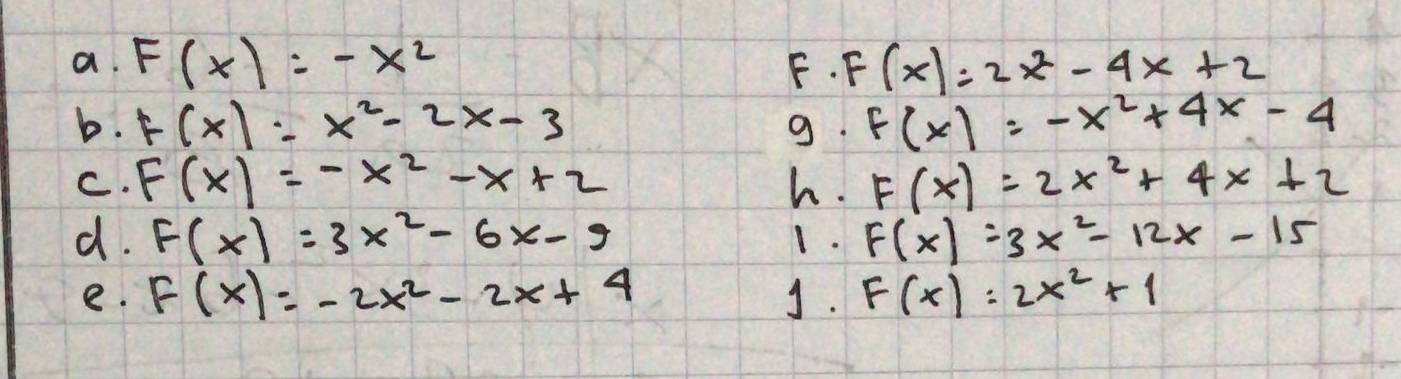 a. F(x) = -x²
b. F(x) = x² - 2x - 3
c. F(x) = -x² - x + 2
d. F(x) = 3x² - 6x - 9
e. F(x) = -2x² - 2x + 4
F. F(x) = 2x² - 4x + 2
g. F(x) = -x² + 4x - 4
h. F(x) = 2x² + 4x + 2
1. F(x) = 3x² - 12x - 15
J. F(x) = 2x² + 1